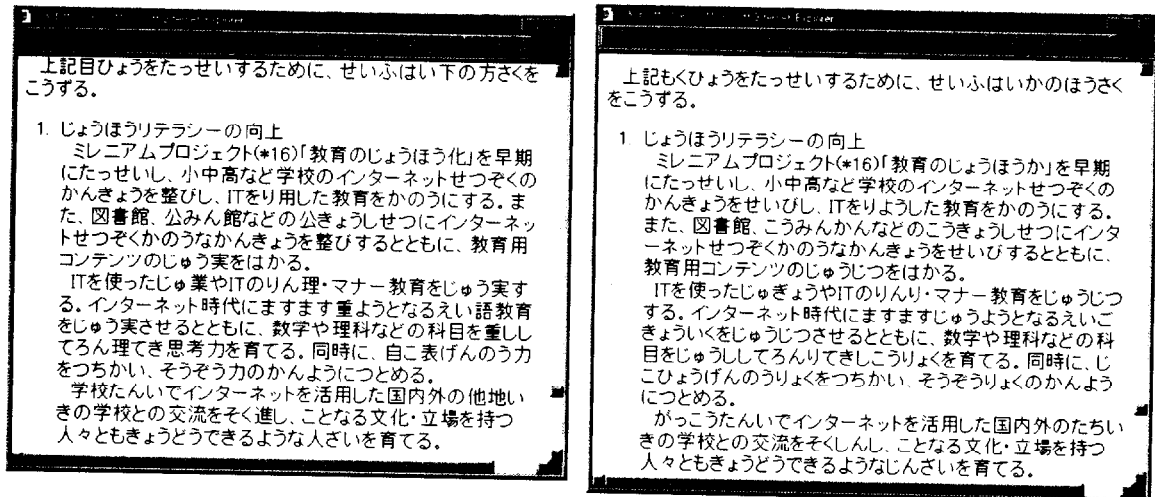 Internet Explorer
上記目ひょうをたっせいするために、せいふはい下の方さくを
こうずる。
1. じょうほうリテラシーの向上
ミレニアムプロジェクト(*16)「教育のじょうほう化」を早期
にたっせいし、小中高など学校のインターネットせつぞくの
かんきょうを整びし、ITをり用した教育をかのうにする。ま
た、図書館、公みん館などの公きょうしせつにインターネッ
トせつぞくかのうなかんきょうを整びするとともに、教育用
コンテンツのじゅう実をはかる。
ITを使ったじゅ業やITのりん理・マナー教育をじゅう実す
る。インターネット時代にますます重ようとなるえい語教育
をじゅう実させるとともに、数学や理科などの科目を重しし
てろん理てき思考力を育てる。同時に、自こ表げんのう力
をつちかい、そうぞう力のかんようにつとめる。
学校たんいでインターネットを活用した国内外の他地い
きの学校との交流をそく進し、ことなる文化・立場を持つ
人々ともきょうどうできるような人ざいを育てる。
Internet Explorer
上記もくひょうをたっせいするために、せいふはいかのほうさく
をこうずる。
1. じょうほうリテラシーの向上
ミレニアムプロジェクト(*16)「教育のじょうほうか」を早期
にたっせいし、小中高など学校のインターネットせつぞくの
かんきょうをせいびし、ITをりようした教育をかのうにする。
また、図書館、こうみんかんなどのこうきょうしせつにインタ
ーネットせつぞくかのうなかんきょうをせいびするとともに、
教育用コンテンツのじゅうじつをはかる。
ITを使ったじゅぎょうやITのりんり・マナー教育をじゅうじつ
する。インターネット時代にますますじゅうようとなるえいご
きょういくをじゅうじつさせるとともに、数学や理科などの科
目をじゅうししてろんりてきしこうりょくを育てる。同時に、じ
こひょうげんのうりょくをつちかい、そうぞうりょくのかんよう
につとめる。
がっこうたんいでインターネットを活用した国内外のたちい
きの学校との交流をそくしんし、ことなる文化・立場を持つ
人々ともきょうどうできるようなじんざいを育てる。